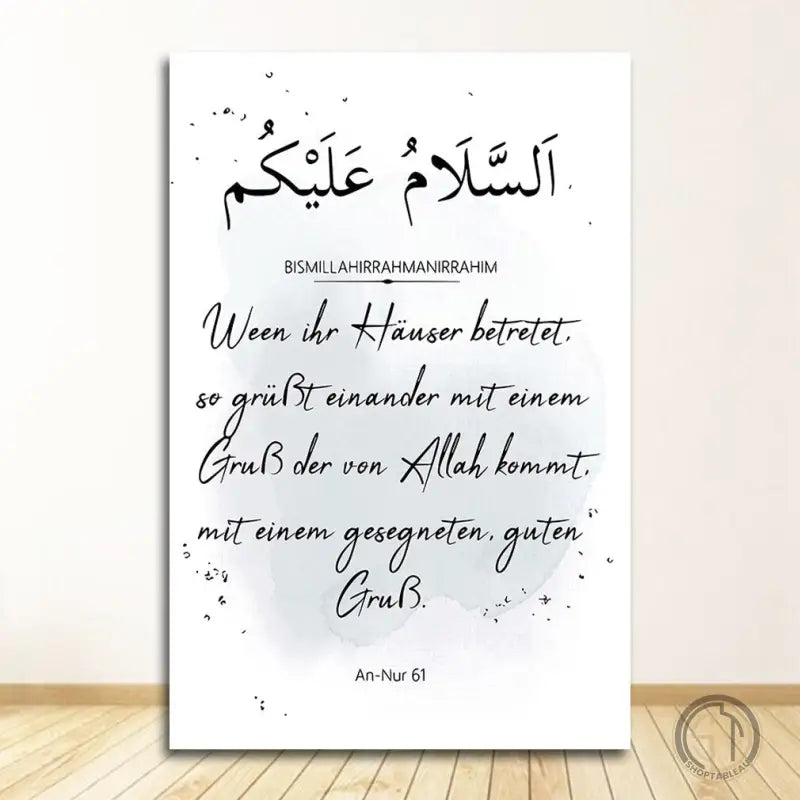 اَلسَّلَامُ عَلَيْكُم
BISMILLAHIRRAHMANIRRAHIM
Ween ihr Häuser betretet,
so grüßt einander mit einem
Gruß der von Allah kommt,
mit einem gesegneten, guten
Gruß.
An-Nur 61
SHOPTABLEAU